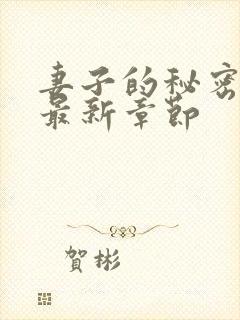 妻子的秘密
最新章節
賀彬